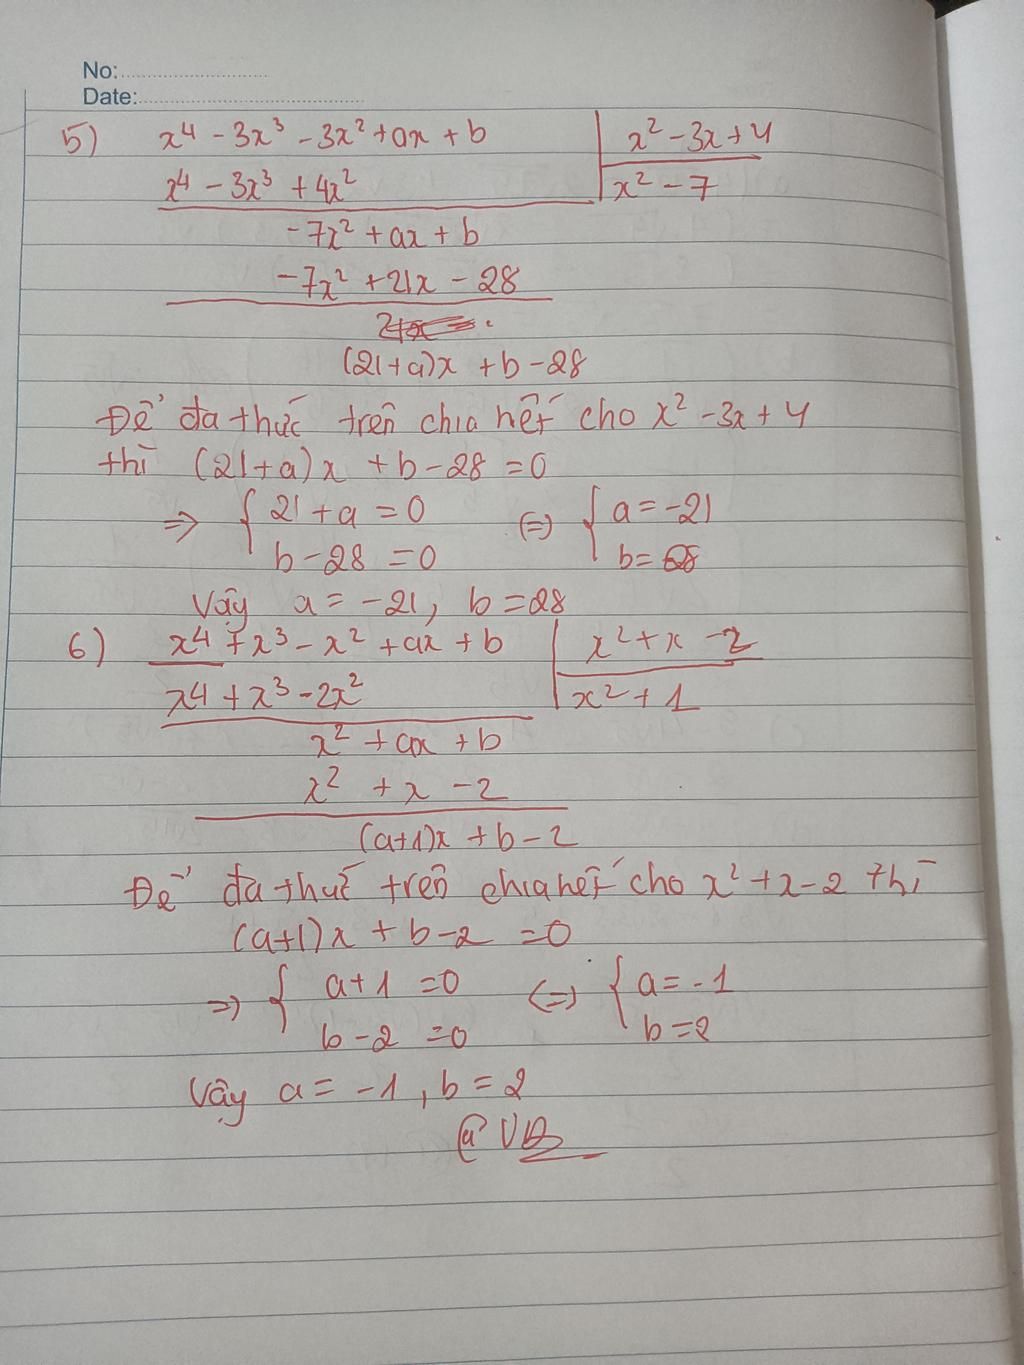 No:
Date:
5) x⁴ - 3x³ - 3x² + ax + b | x² - 3x + 4
x⁴ - 3x³ + 4x² | x² - 7
-7x² + ax + b
-7x² + 21x - 28
(21+a)x + b - 28
Để đa thức trên chia hết cho x² - 3x + 4
thì (21+a)x + b - 28 = 0
⇒ { 21 + a = 0 (=) { a = -21
b - 28 = 0 b = 28
Vậy a = -21, b = 28
6) x⁴ + x³ - x² + ax + b | x² + x - 2
x⁴ + x³ - 2x² | x² + 1
x² + ax + b
x² + x - 2
(a+1)x + b - 2
Để đa thức trên chia hết cho x² + x - 2 thì
(a+1)x + b - 2 = 0
⇒ { a + 1 = 0 (=) { a = -1
b - 2 = 0 b = 2
Vậy a = -1, b = 2
@ VB